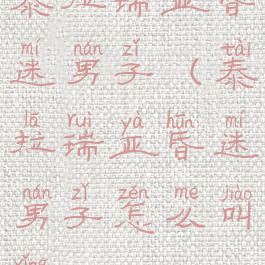 泰拉瑞亚昏
mí nán zǐ tài
迷男子（泰
lā ruì yà hūn mí
拉瑞亚昏迷
nán zǐ zěn me jiào
男子怎么叫
xǐng